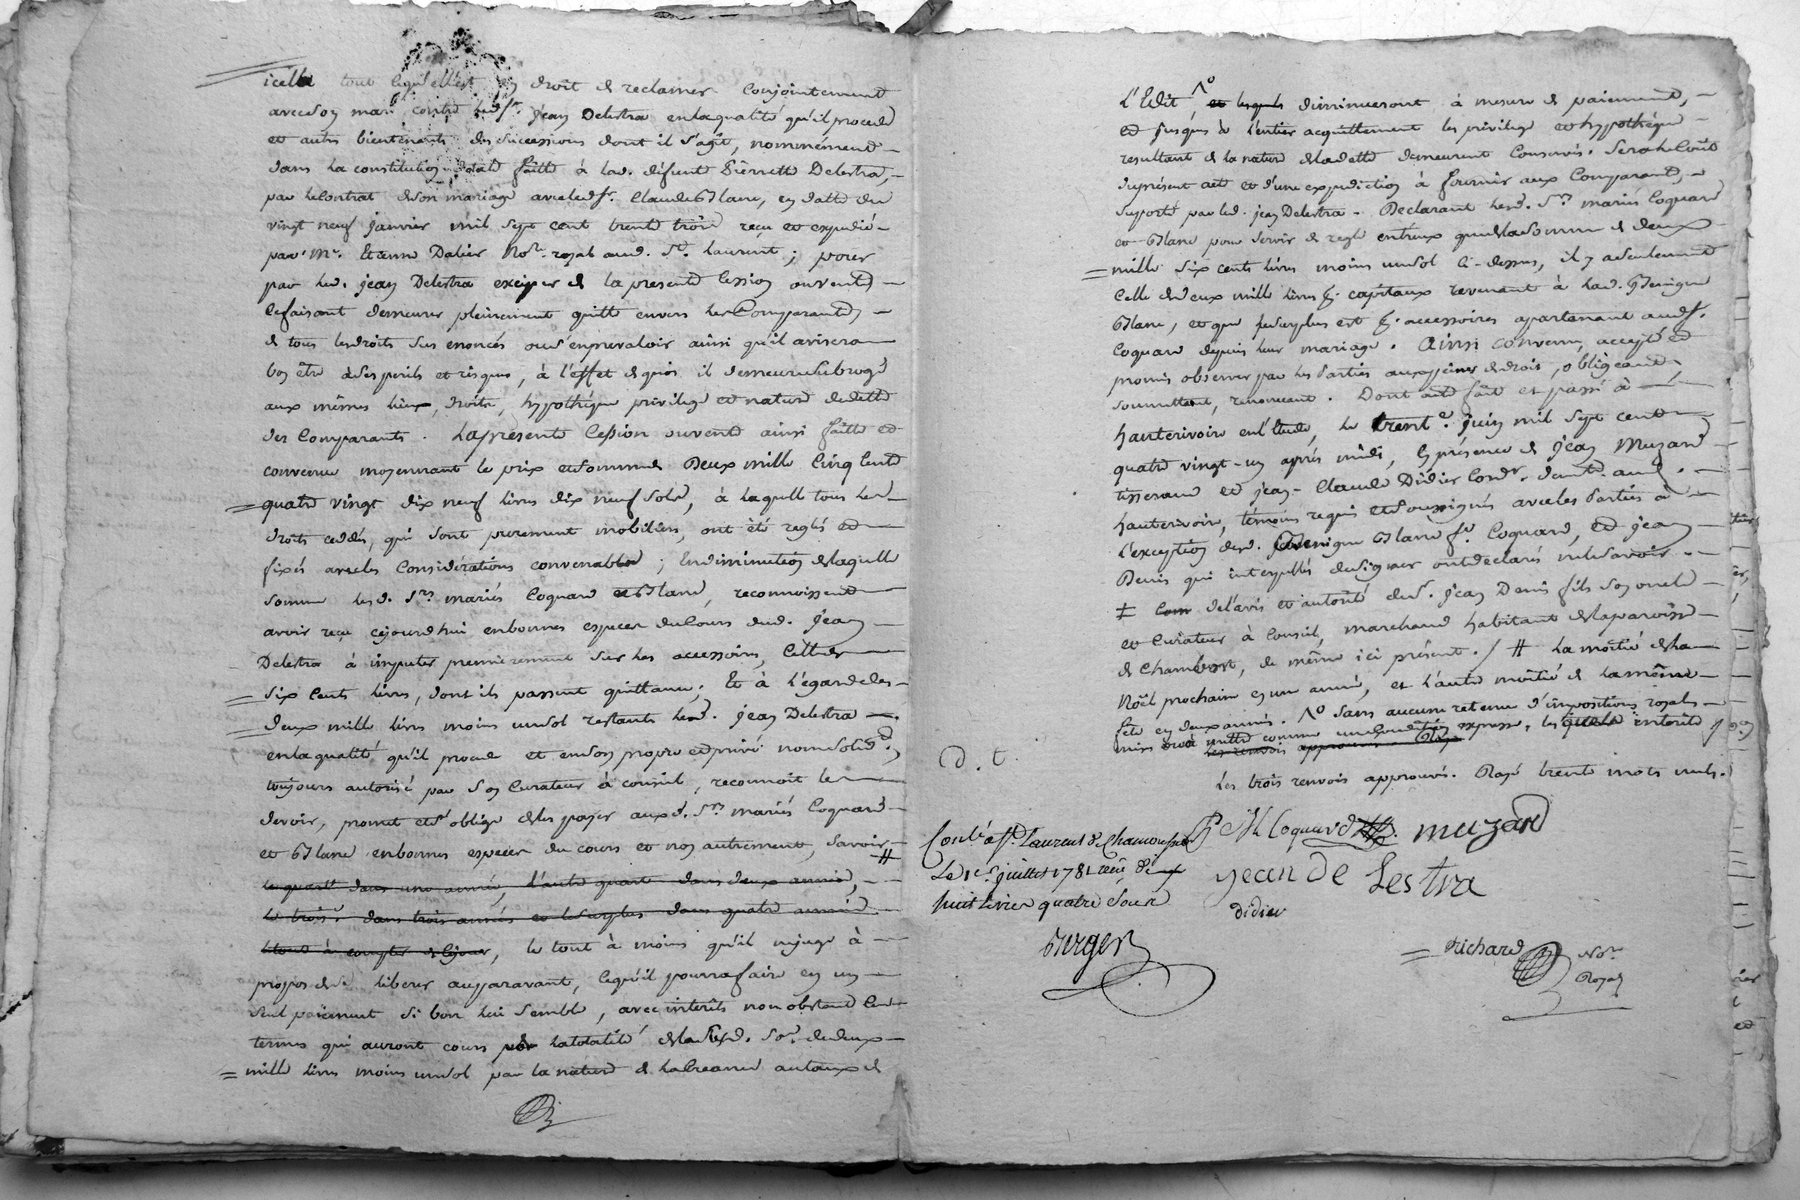 icelle tout ce qu'elle est en droit de reclamer conjointement
avec son mari contre led. sr. jean Delestra en la qualité qu'il procede
et autres bientenants des successions dont il s'agit, nommément
dans la constitution dotale faitte à lad. défunte Pierrette Delestra,
par le Contrat de son mariage avec led. sr. Claude Blanc, en datte du
vingt neuf janvier mil sept cent trente trois reçu et expedié
par Me. Etienne Dalier Nore. royal aud. St. laurent; pour
par led. jean Delestra exciper de la presente cession ou vente
le faisant demeurer pleinement quitte envers les Comparants
de tous les droits sus enoncés ou s'en prevaloir ainsi qu'il avisera
bon être à ses perils et risques, à l'effet de quoi il demeure subrogé
aux mêmes lieux, droits, hypothéque privilege et nature de dette
des Comparants. La presente Cession ou vente ainsi faitte et
convenue moyennant le prix et somme de Deux mille Cinq Cents
quatre vingt dix neuf livres dix neuf sols, à laquelle tous les
droits cedés, qui sont purement mobiliers, ont été reglés et
fixés avec les Considérations convenables; En diminution de laquelle
somme lesd. Srs. mariés Coquard et Blanc, reconnoissent
avoir reçu cejourd'hui en bonnes especes du Cours dud. jean
Delestra à imputer premierement sur les accessoires, Celle de
six Cents livres, dont ils passent quittance; Et à l'égard des
deux mille livres moins un sol restants led. jean Delestra
en la qualité qu'il procede et en son propre et privé nom solid.
toujours autorisé par son Curateur à conseil, reconnoit les
devoir, promet et s'oblige de les payer auxd. Srs. mariés Coquard
et Blanc en bonnes especes du cours et non autrement, savoir #
le quart dans une année, l'autre quart dans deux années,
le trois.e dans trois années et le surplus dans quatre années
le tout à compter de ce jour, le tout à moins qu'il ne juge à
propos de se liberer auparavant, ce qu'il pourra faire en un
seul paiement si bon lui semble, avec interêts non obstant les
termes qui auront cours pour la totalité de la susd. Soe. de deux
mille livres moins un sol par la nature de la Creance au taux de
L'Edit ^o et lesquels diminueront à mesure de paiement,
et jusqu'à l'entier acquittement les privilege et hypothéque
resultant de la nature de la dette demeurent Conservés. Sera le Coût
du présent acte et d'une expedition à fournir aux Comparants,
suporté par led. jean Delestra. Declarant lesd. Srs. mariés Coquard
et Blanc pour servir de regle entr'eux que de la somme de deux
mille six cents livres moins un sol Ci-dessus, il y a seulement
Celle de deux mille livres de capitaux revenant à lad. Benigne
Blanc, et que le surplus est de accessoires apartenant aud. sr.
Coquard depuis leur mariage. Ainsi convenu, accepté et
promis observer par les Parties aux peines de droit, obligeant,
soumettant, renonçant. Dont acte fait et passé à
hauterivoire en l'Etude, le trente. juin mil sept cent
quatre vingt-un après midi, En présence de jean Muzard
tisserand et jean-Claude Didier Cordr. demt. aud.
hauterivoire, témoins requis et soussignés avec les Parties à
L'exception desd. Benigne Blanc fe. Coquard, et jean
Denis qui interpellés de signer ont declaré ne le savoir.
‡ Com de l'avis et autorité dud. jean Denis fils son oncle
et Curateur à Conseil, marchand habitant de la paroisse
de Chambost, de même ici présent. / # La moitié de la
Noël prochain en un année, et l'autre moitié de la même
fête en deux années. ^o sans aucune retenue d'impositions royales
mises ou à mettre comme une condition expresse, les quels interêts
les renvois approuvés
Les trois renvois approuvés. Rayé trente mots nuls.
D. t.
Conlé. a St. Laurent de Chamousset
Le 1er. juillet 1781 reçu
huit livres quatre sous
Berger
Coquard muzard
jean De Lestra
didier
Richard Nore.
Royal